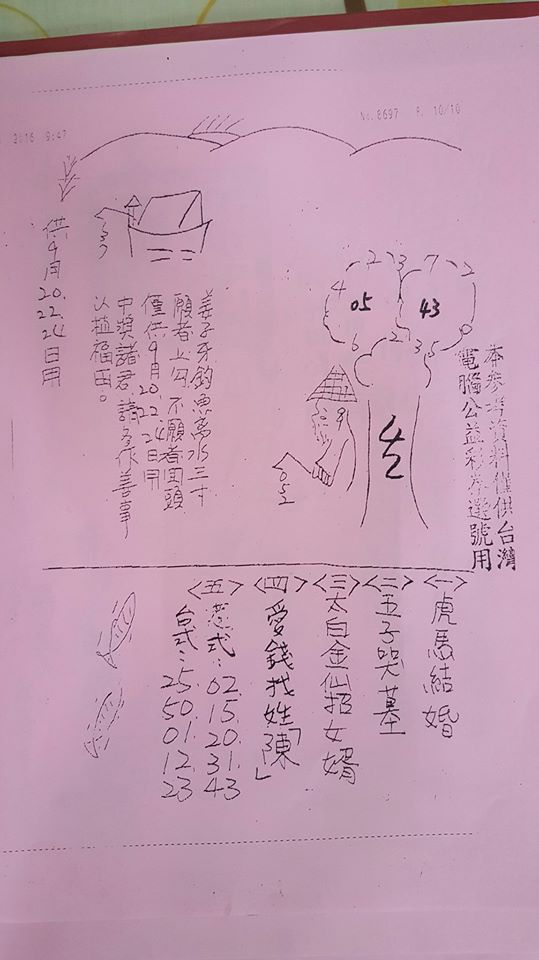 2016 9:47
No.8697 P. 10/10
本參考資料僅供台灣
電腦公益彩券選號用
4 2 3 7 2
05
43
6 2 1 3 5 0
42
9
052
姜子牙釣魚高水三寸
願者上勾不願者回頭
僅供9月20.22.24日用
中獎諸君請多作善事
以植福田。
供9月20.22.24日用
<一>虎馬結婚
<二>五子哭墓
<三>太白金仙招女婿
<四>愛錢找姓「陳」
<五>港式:02.15.20.31.43
台式:25.50.01.12.23